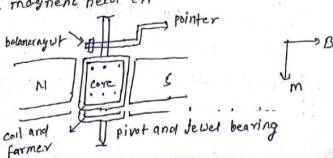 magnetic field
pointer
balancing wt
B
N
core
S
m
coil and
farmer
pivot and Jewel bearing